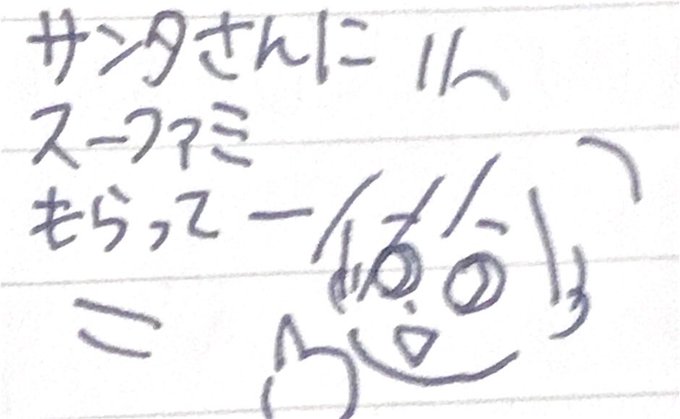 サンタさんに
スーファミ
もらって